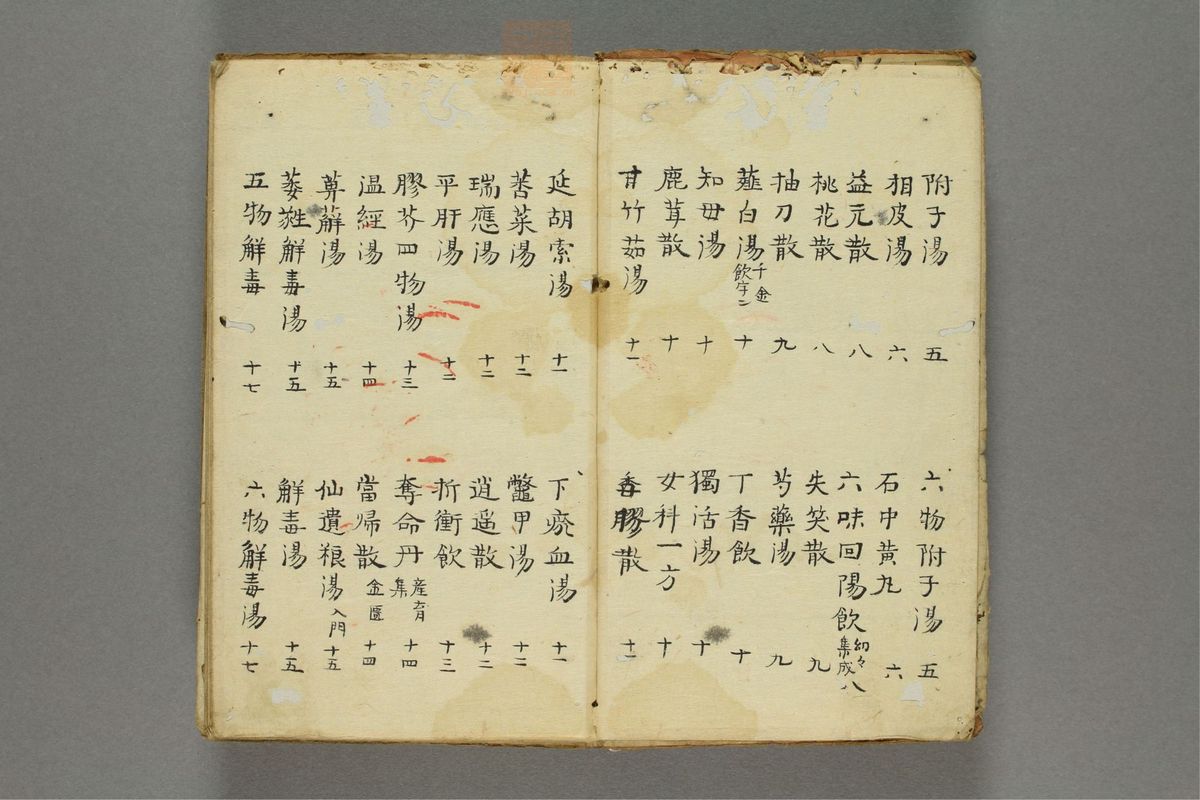 附子湯 五
相皮湯 六
益元散 八
桃花散 八
柚刀散 九
薤白湯 千金飲字ニ 十
知毋湯 十
鹿茸散 十
甘竹茹湯 十一
六物附子湯 五
石中黄丸 六
六味回陽飲 幼々集成 八
失笑散 九
芍藥湯 九
丁香飲 十
獨活湯 十
女科一方 十
香膠散 十二
延胡索湯 十一
莕菜湯 十二
瑞應湯 十二
平肝湯 十二
膠芥四物湯 十三
温經湯 十四
萆薢湯 十五
萎蕤解毒湯 十五
五物解毒 十七
下瘀血湯 十一
鼈甲湯 十二
逍遥散 十二
折衝飲 十三
奪命丹 産育集 十四
當帰散 金匱 十四
仙遺粮湯 入門 十五
解毒湯 十五
六物解毒湯 十七